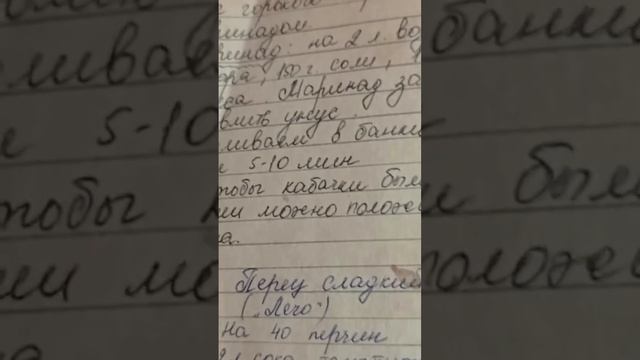 с горкой
ринадом
ринад: на 2 л. во
ара, 150 г. соли, 1
са. Маринад за
вить уксус.
ливаем в банки
и 5-10 мин
тобы кабачки был
ми можно положе
а.
Перец сладкий
("Лечо")
На 40 перчин